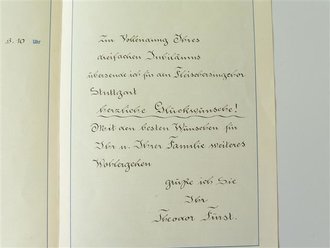 8.30 Uhr
Zur Vollendung Ihres
dreifachen Jubiläums
übersende ich für den Fleischersingchor
Stuttgart
herzliche Glückwünsche!
Mit den besten Wünschen für
Ihr u. Ihrer Familie weiteres
Wohlergehen
grüße ich Sie
Ihr
Theodor Fürst.